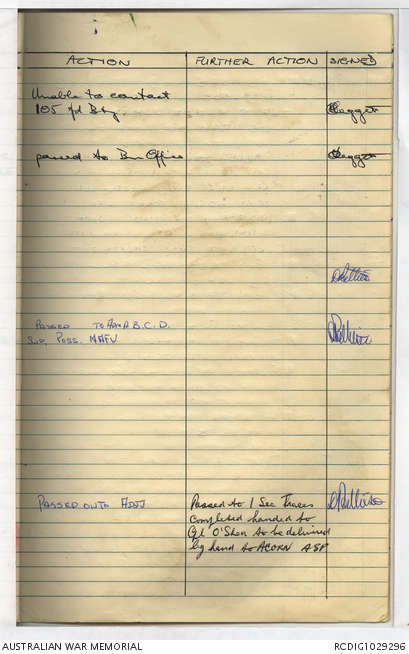 ACTION FURTHER ACTION SIGNED
Unable to contact
105 fd Bty
passed to Bn Office
PASSED TO A B.C.D.
Sup, Poss. MAFU
PASSED ONTO ADJ
Passed to 1 Sec Traces
completed handed to
Cpl O'Shea to be delivered
by hand to ACORN ASP
AUSTRALIAN WAR MEMORIAL
RCDIG1029296